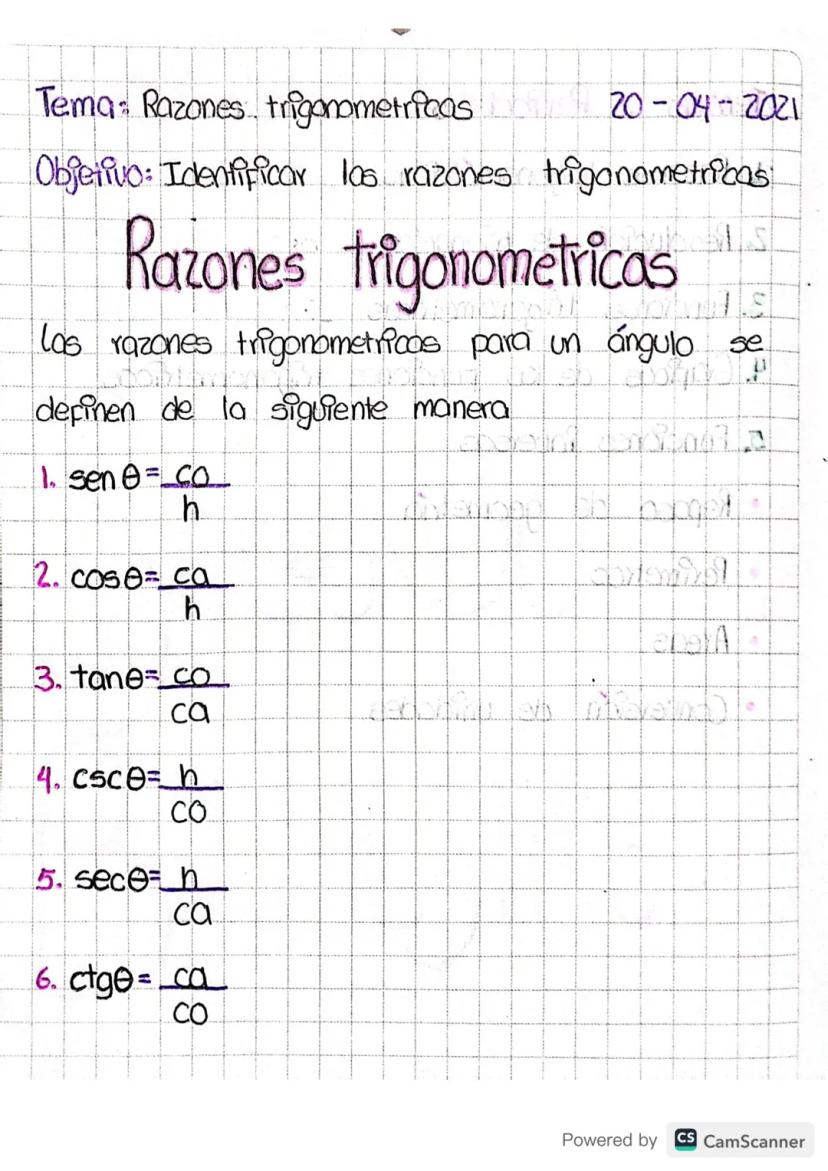 Tema: Razones trigonometricas 20-04-2021
Objetivo: Identificar las razones trigonometricas
Razones trigonometricas
las razones trigonometricas para un ángulo se
definen de la siguiente manera
1. sen θ = co
h
2. cos θ = ca
h
3. tan θ = co
ca
4. csc θ = h
co
5. sec θ = h
ca
6. ctg θ = ca
co
Powered by CS CamScanner